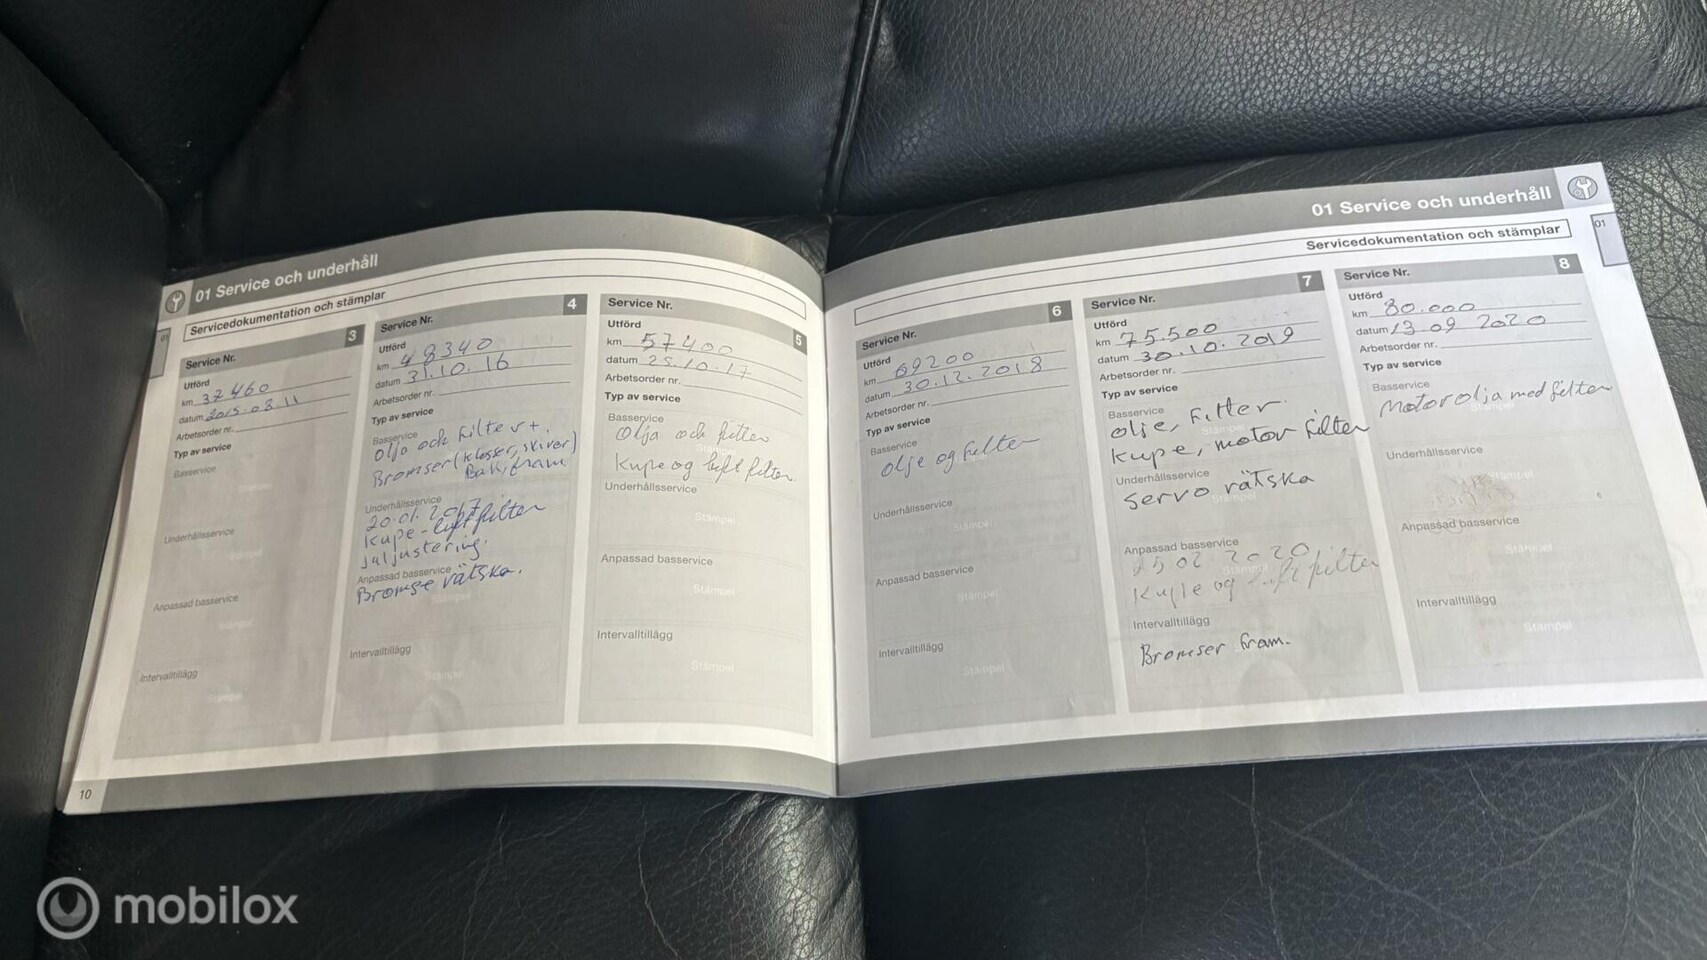 01 Service och underhåll
Servicedokumentation och stämplar
01
Service Nr. 3
Utförd
km 37460
datum 2015.03.11
Arbetsorder nr.
Typ av service
Basservice
Stämpel
Underhållsservice
Stämpel
Anpassad basservice
Stämpel
Intervalltillägg
Stämpel
Service Nr. 4
Utförd
km 48340
datum 31.10.16
Arbetsorder nr.
Typ av service
Basservice
olja och Filter +.
Bromser (klosser, skiver)
Bak, fram
Underhållsservice
20.01.2017
Kupe - luftfilter
juljustering.
Anpassad basservice
Bromse vätska.
Stämpel
Intervalltillägg
Stämpel
Service Nr. 5
Utförd
km 57400
datum 25.10.17
Arbetsorder nr.
Typ av service
Basservice
Olja och filter
Kupe og luft filter
Underhållsservice
Stämpel
Anpassad basservice
Stämpel
Intervalltillägg
Stämpel
10
01 Service och underhåll
Servicedokumentation och stämplar
01
Service Nr. 6
Utförd
km 69200
datum 30.12.2018
Arbetsorder nr.
Typ av service
Basservice
olje og filter
Underhållsservice
Stämpel
Anpassad basservice
Stämpel
Intervalltillägg
Stämpel
Service Nr. 7
Utförd
km 75.500
datum 30.10.2019
Arbetsorder nr.
Typ av service
Basservice
olje, Filter
Kupe, motor filter
Underhållsservice
Servo vätska
Stämpel
Anpassad basservice
2502 2020
Kupe og luft filter
Intervalltillägg
Bromser fram.
Service Nr. 8
Utförd
km 80.000
datum 13 09 2020
Arbetsorder nr.
Typ av service
Basservice
Motorolja med filter
Stämpel
Underhållsservice
Stämpel
Anpassad basservice
Stämpel
Intervalltillägg
Stämpel
mobilox